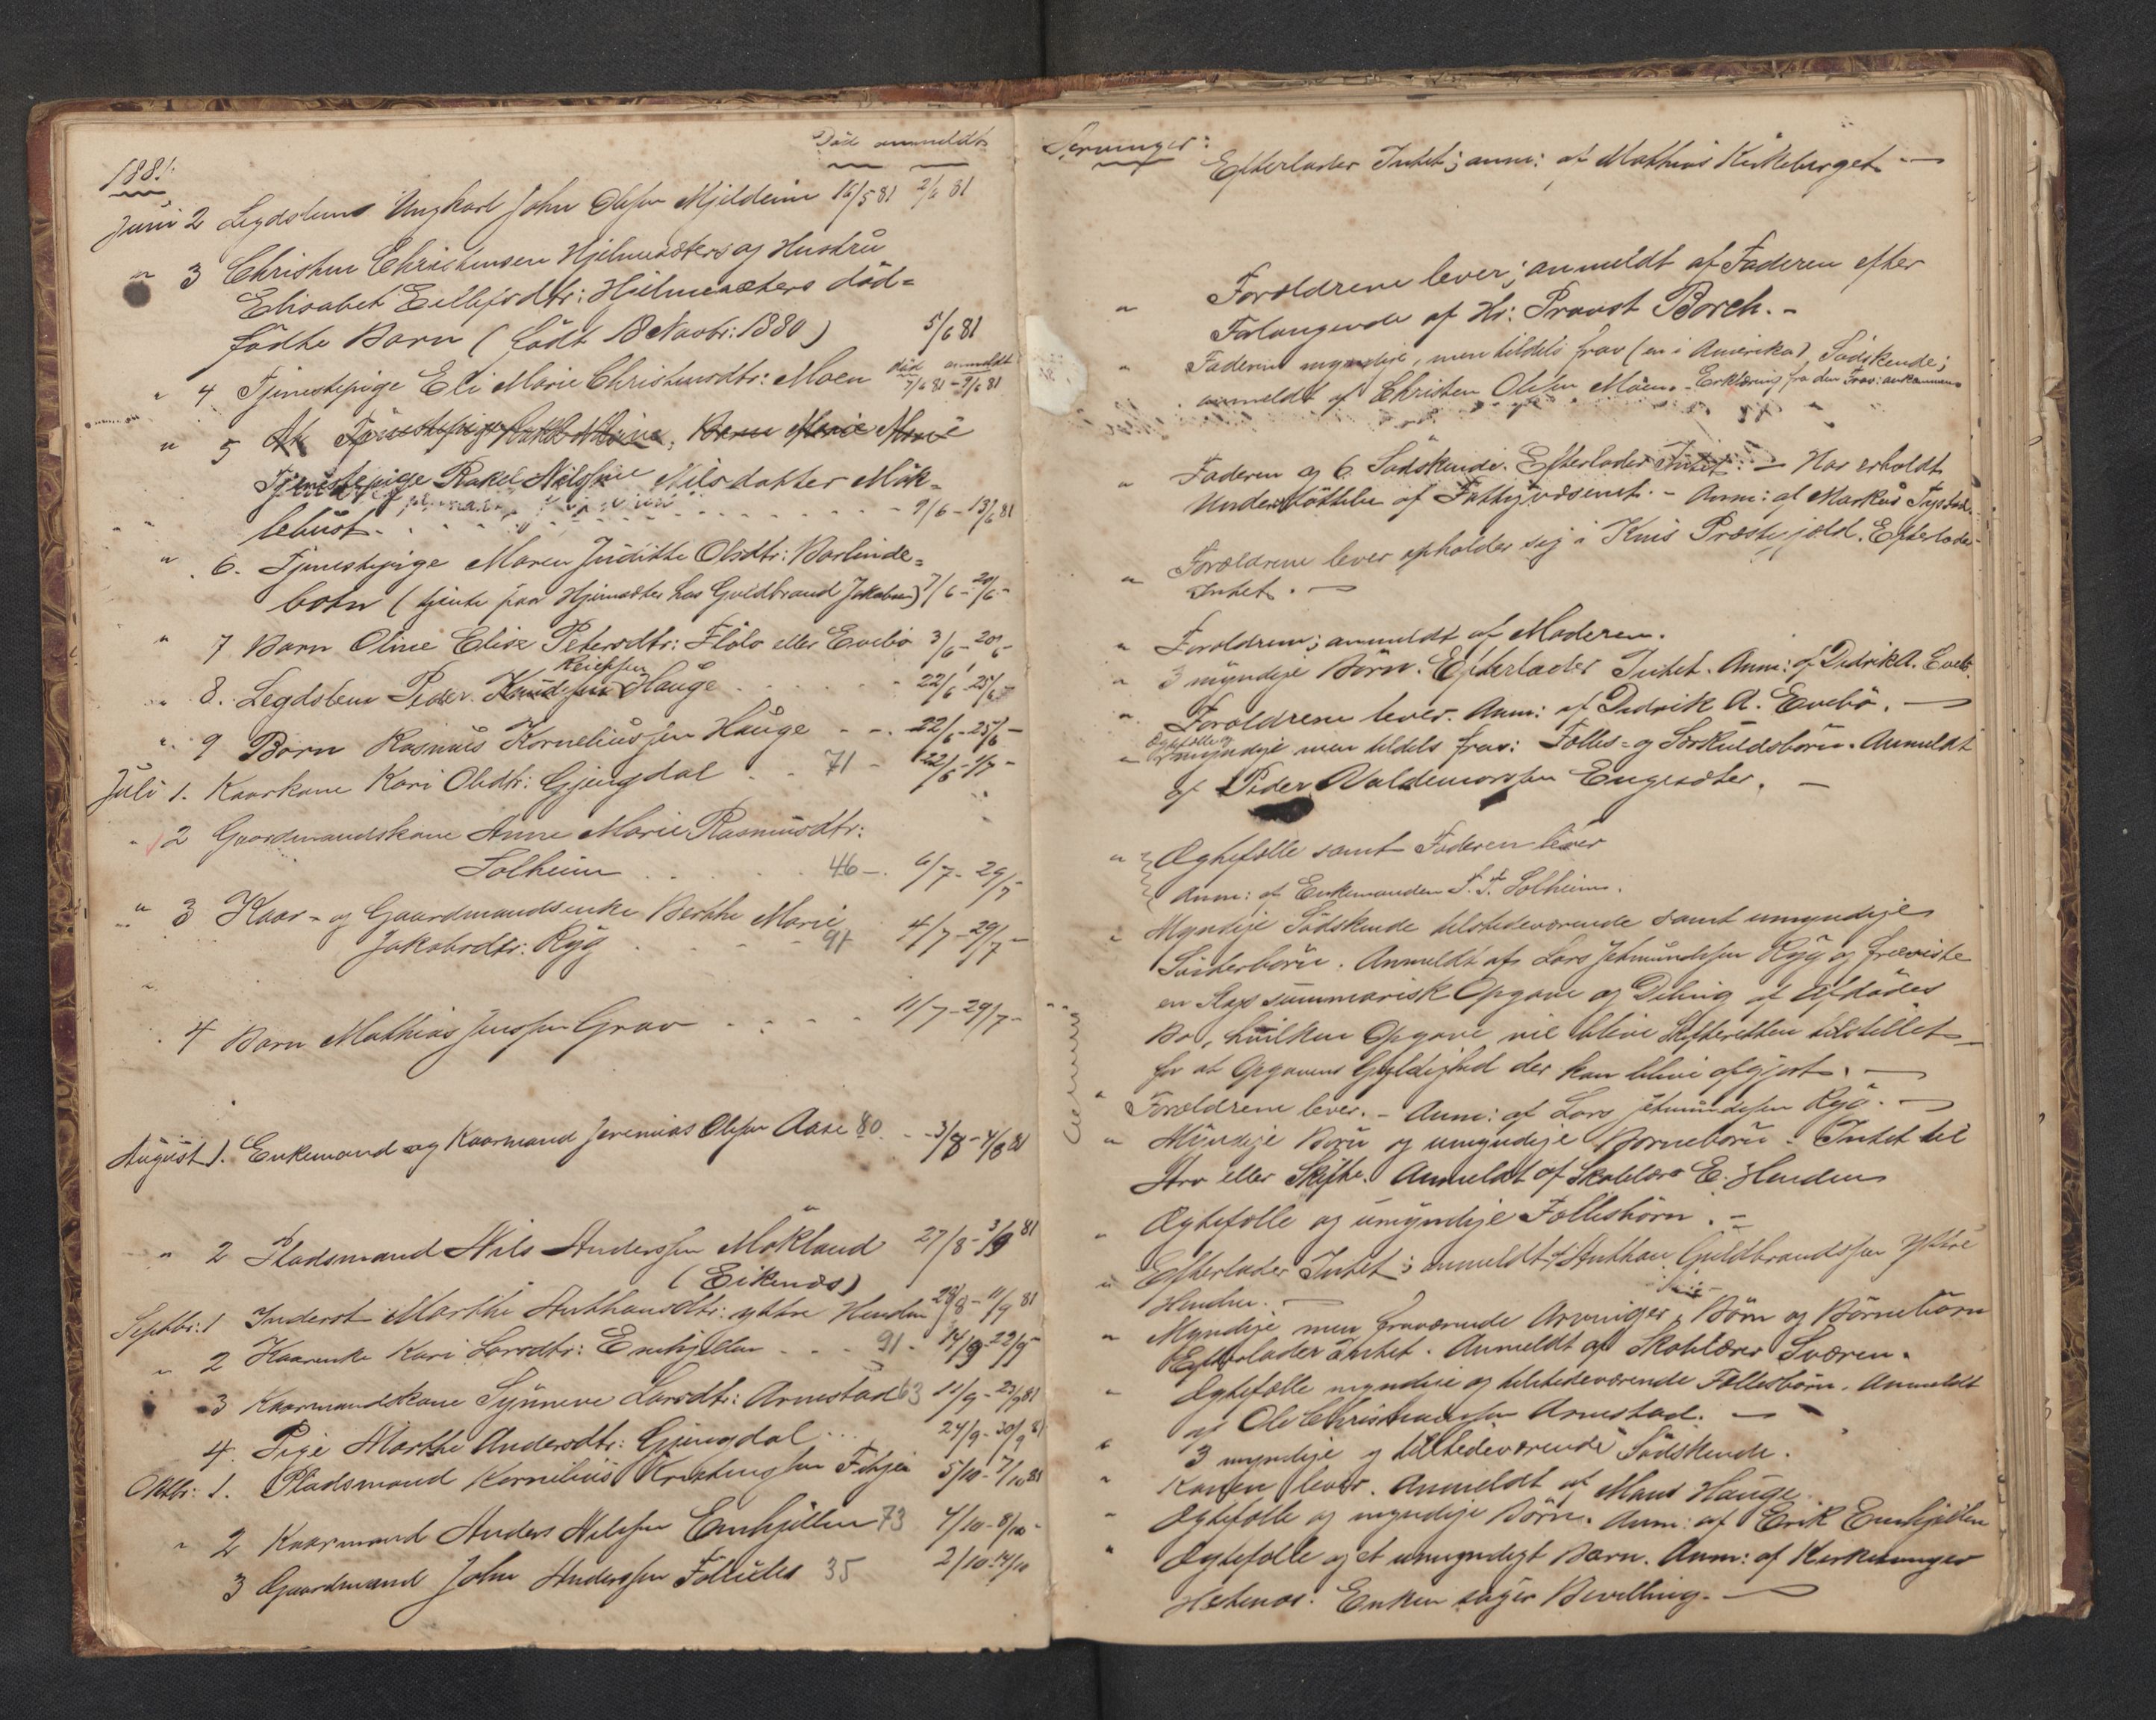 Död anmeldt
1881.
Juni 2 Legdslem Ungkarl John Olsen Mjeldeim 16/5 81 2/6 81
" 3 Christen Christensen Hjelmesæters og Hustru
Elisabet Eilefsdtr: Hjelmesæters död=
födte Barn (födt 18 Novbr: 1880) 5/6 81
död anmeldt
" 4 Tjenestepige Eli Marie Christensdtr: Moen 7/6 81 - 9/6 81
" 5
Tjenestepige Rakel Nilsdatter Mök=
lebust. 9/6 - 13/6 81
" 6. Tjenestepige Maren Juditte Olsdtr: Barlinde=
botn (tjente paa Hjemsæter hos Guldbrand Jakobsen) 7/6 - 20/6 -
" 7 Barn Oline Elise Petersdtr: Flölo eller Evebö 3/6 - 20/6
" 8. Legdslem Peder Hauge 22/6 - 25/6
" 9 Barn Rasmus Korneliussen Hauge 22/6 - 25/6 -
Juli 1. Kaarkone Kari Olsdtr: Gjengdal 71 - 22/6 - 1/7 -
" 2 Gaardmandskone Anne Marie Rasmusdtr:
Solheim 46 - 6/7 - 29/7 -
" 3 Kaar- og Gaardmandsenke Berthe Marie
Jakobsdtr: Ryg 91 4/7 - 29/7 -
" 4 Barn Mathias Jenssen Grov 11/7 - 29/7 -
August 1. Enkemand og Kaarmand Jeremias Olsen Aase 80 3/8 - 4/8 81
" 2 Pladsmand Nils Anderssen Mökland 27/8 - 3/9 81
(Eikenæs)
Septbr: 1 Inderst Marthe Anthonsdtr: yttre Henden 28/8 - 11/9 81
" 2 Kaarenke Kari Larsdtr: Emhjellen 91 - 14/9 - 22/9 -
" 3 Kaarmandskone Synneve Larsdtr: Arnestad 63 11/9 - 23/9 81
4. Pige Marthe Andersdtr: Gjengdal 24/9 - 30/9 81
Oktbr: 1. Pladsmand Kornelius Kristensen Fitje 5/10 - 7/10 81
" 2 Kaarmand Anders Nilssen Emhjellen 73 4/10 - 8/10 -
3 Gaardmand John Anderssen 35 2/10 - 14/10
Arvinger:
Efterlader Intet; anm: af Mathias Kirkeberget
" Forældrene lever; anmeldt af Faderen efter
Forlangende af Hr: Provst Borch. -
" Faderen myndige, men tildels frav (en i Amerika) Södskende;
anmeldt af Christen Olsen Moen. - Erklæring fra den Frav: ankommen
" Faderen og 6 Södskende. Efterlader Intet. - Har erholdt
Understöttelse af Fattigvæsenet. - Anm: af Markus Trystad.
" Forældrene lever opholder sig i Kins Præstegjæld. Efterlader
Intet. -
" Forældrene; anmeldt af Moderen.
" 3 myndige Börn. Efterlader Intet. Anm: af Didrik A. Evebö.
" Forældrene lever. Anm: af Didrik A. Evebö. -
Ægtefælle og
" myndige men tildels frav: Fælles- og Særkuldsbörn. Anmeldt
af Peder Valdemarssen Engesæter. -
" Ægtefælle samt Faderen lever
Anm: af Enkemanden T. T. Solheim.
" Myndige Södskende tilstedeværende samt umyndige
Södskendebörn. Anmeldt af Lars Jetmundssen Ryg og fremviste
en Slags summarisk Opgave og Deling af Afdödes
Bo, hvilken Opgave vil blive Skifteretten tilstillet
for at Opgavens Gyldighed der kan blive afgjort. -
" Forældrene lever. - Anm: af Lars Jetmundssen Ryg. -
" Myndige Börn og umyndige Börnebörn. Intet til
Arv eller Skifte. Anmeldt af Skolelærer E. Henden
" Ægtefælle og umyndige Fællesbörn. -
" Efterlader Intet; anmeldt af Anthon Guldbrandssen Yttre
Henden. -
" Myndige men fraværende Arvinger, Börn og Börnebörn
Efterlader Intet. Anmeldt af Skolelærer Sværen.
" Ægtefælle myndige og tilstedeværende Fællesbörn. Anmeldt
af Ole Christianssen Arnestad. -
" 3 myndige og tilstedeværende Södskende.
" Konen lever. Anmeldt af Mons Hauge.
" Ægtefælle og myndige Börn. Anm: af Erik Emhjellen
" Ægtefælle og et umyndigt Barn. Anm: af Kirkesanger
Hetenæs. Enken söger Bevilling. -